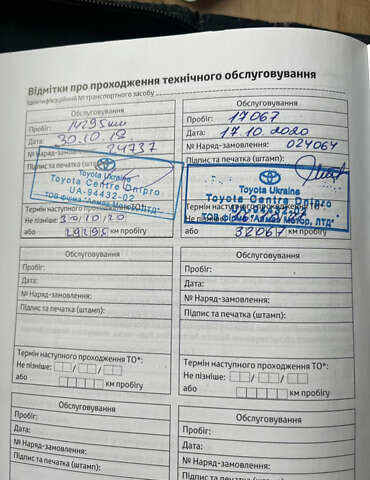 Відмітки про проходження технічного обслуговування
Ідентифікаційний № транспортного засобу
Обслуговування
Пробіг: 14295 км
Дата: 30.10.19
№ Наряд-замовлення: 24737
Підпис та печатка (штамп):
Toyota Ukraine
Toyota Centre Dnipro
UA-94432-02
ТОВ ФІРМА "Алмаз Мотор, ЛТД"
Термін наступного проходження ТО*:
Не пізніше: 30/10/20
або 29295 км пробігу
Обслуговування
Пробіг: 17067
Дата: 17.10.2020
№ Наряд-замовлення: 024064
Підпис та печатка (штамп):
Toyota Ukraine
Toyota Centre Dnipro
ТОВ ФІРМА "Алмаз Мотор, ЛТД"
Термін наступного проходження ТО*:
Не пізніше:
або 32067 км пробігу
Обслуговування
Пробіг:
Дата:
№ Наряд-замовлення:
Підпис та печатка (штамп):
Термін наступного проходження ТО*:
Не пізніше: / /
або км пробігу
Обслуговування
Пробіг:
Дата:
№ Наряд-замовлення:
Підпис та печатка (штамп):
Термін наступного проходження ТО*:
Не пізніше: / /
або км пробігу
Обслуговування
Пробіг:
Дата:
№ Наряд-замовлення:
Підпис та печатка (штамп):
Обслуговування
Пробіг:
Дата:
№ Наряд-замовлення:
Підпис та печатка (штамп):